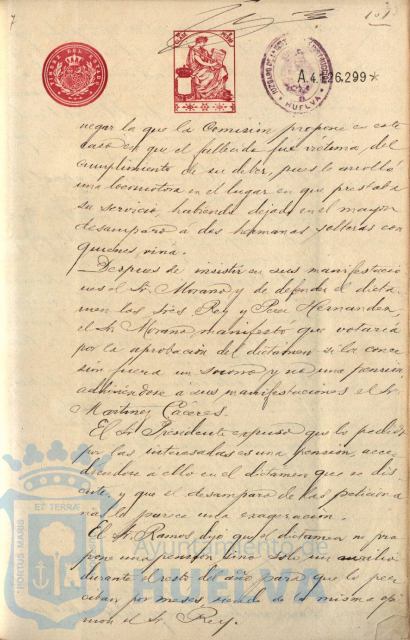 101
A.4.126.299*
HUELVA
negar la que la Comisión propone en este
caso en que el fallecido fué víctima del
cumplimiento de su deber, pues le arrolló
una locomotora en el lugar en que prestaba
su servicio, habiendo dejado en el mayor
desamparo a dos hermanas solteras con
quienes vivía.
Despues de insistir en sus manifestacio
nes el Sr. Morano y de defender el dicta
men los Sres Rey y Perez Hernandez,
el Sr. Morano, manifestó que votaría
por la aprobación del dictamen si la conce
sión fuera un socorro y no una pensión,
adhiriéndose a sus manifestaciones el Sr.
Martinez Cáceres.
El Sr. Presidente expuso que lo pedido
por las interesadas es una pensión, acce
diendose á ello en el dictamen que se dis
cute, y que el desamparo de las peticiona
rias le parece una exageración.
El Sr. Ramos dijo que el dictamen no pro
pone una pensión sino solo un auxilio
durante el resto del año para que lo per
ciban por meses, siendo de la misma opi
nión el Sr. Rey.
ET TERRA
PORTUS MARIS
Ayuntamiento de
HUELVA